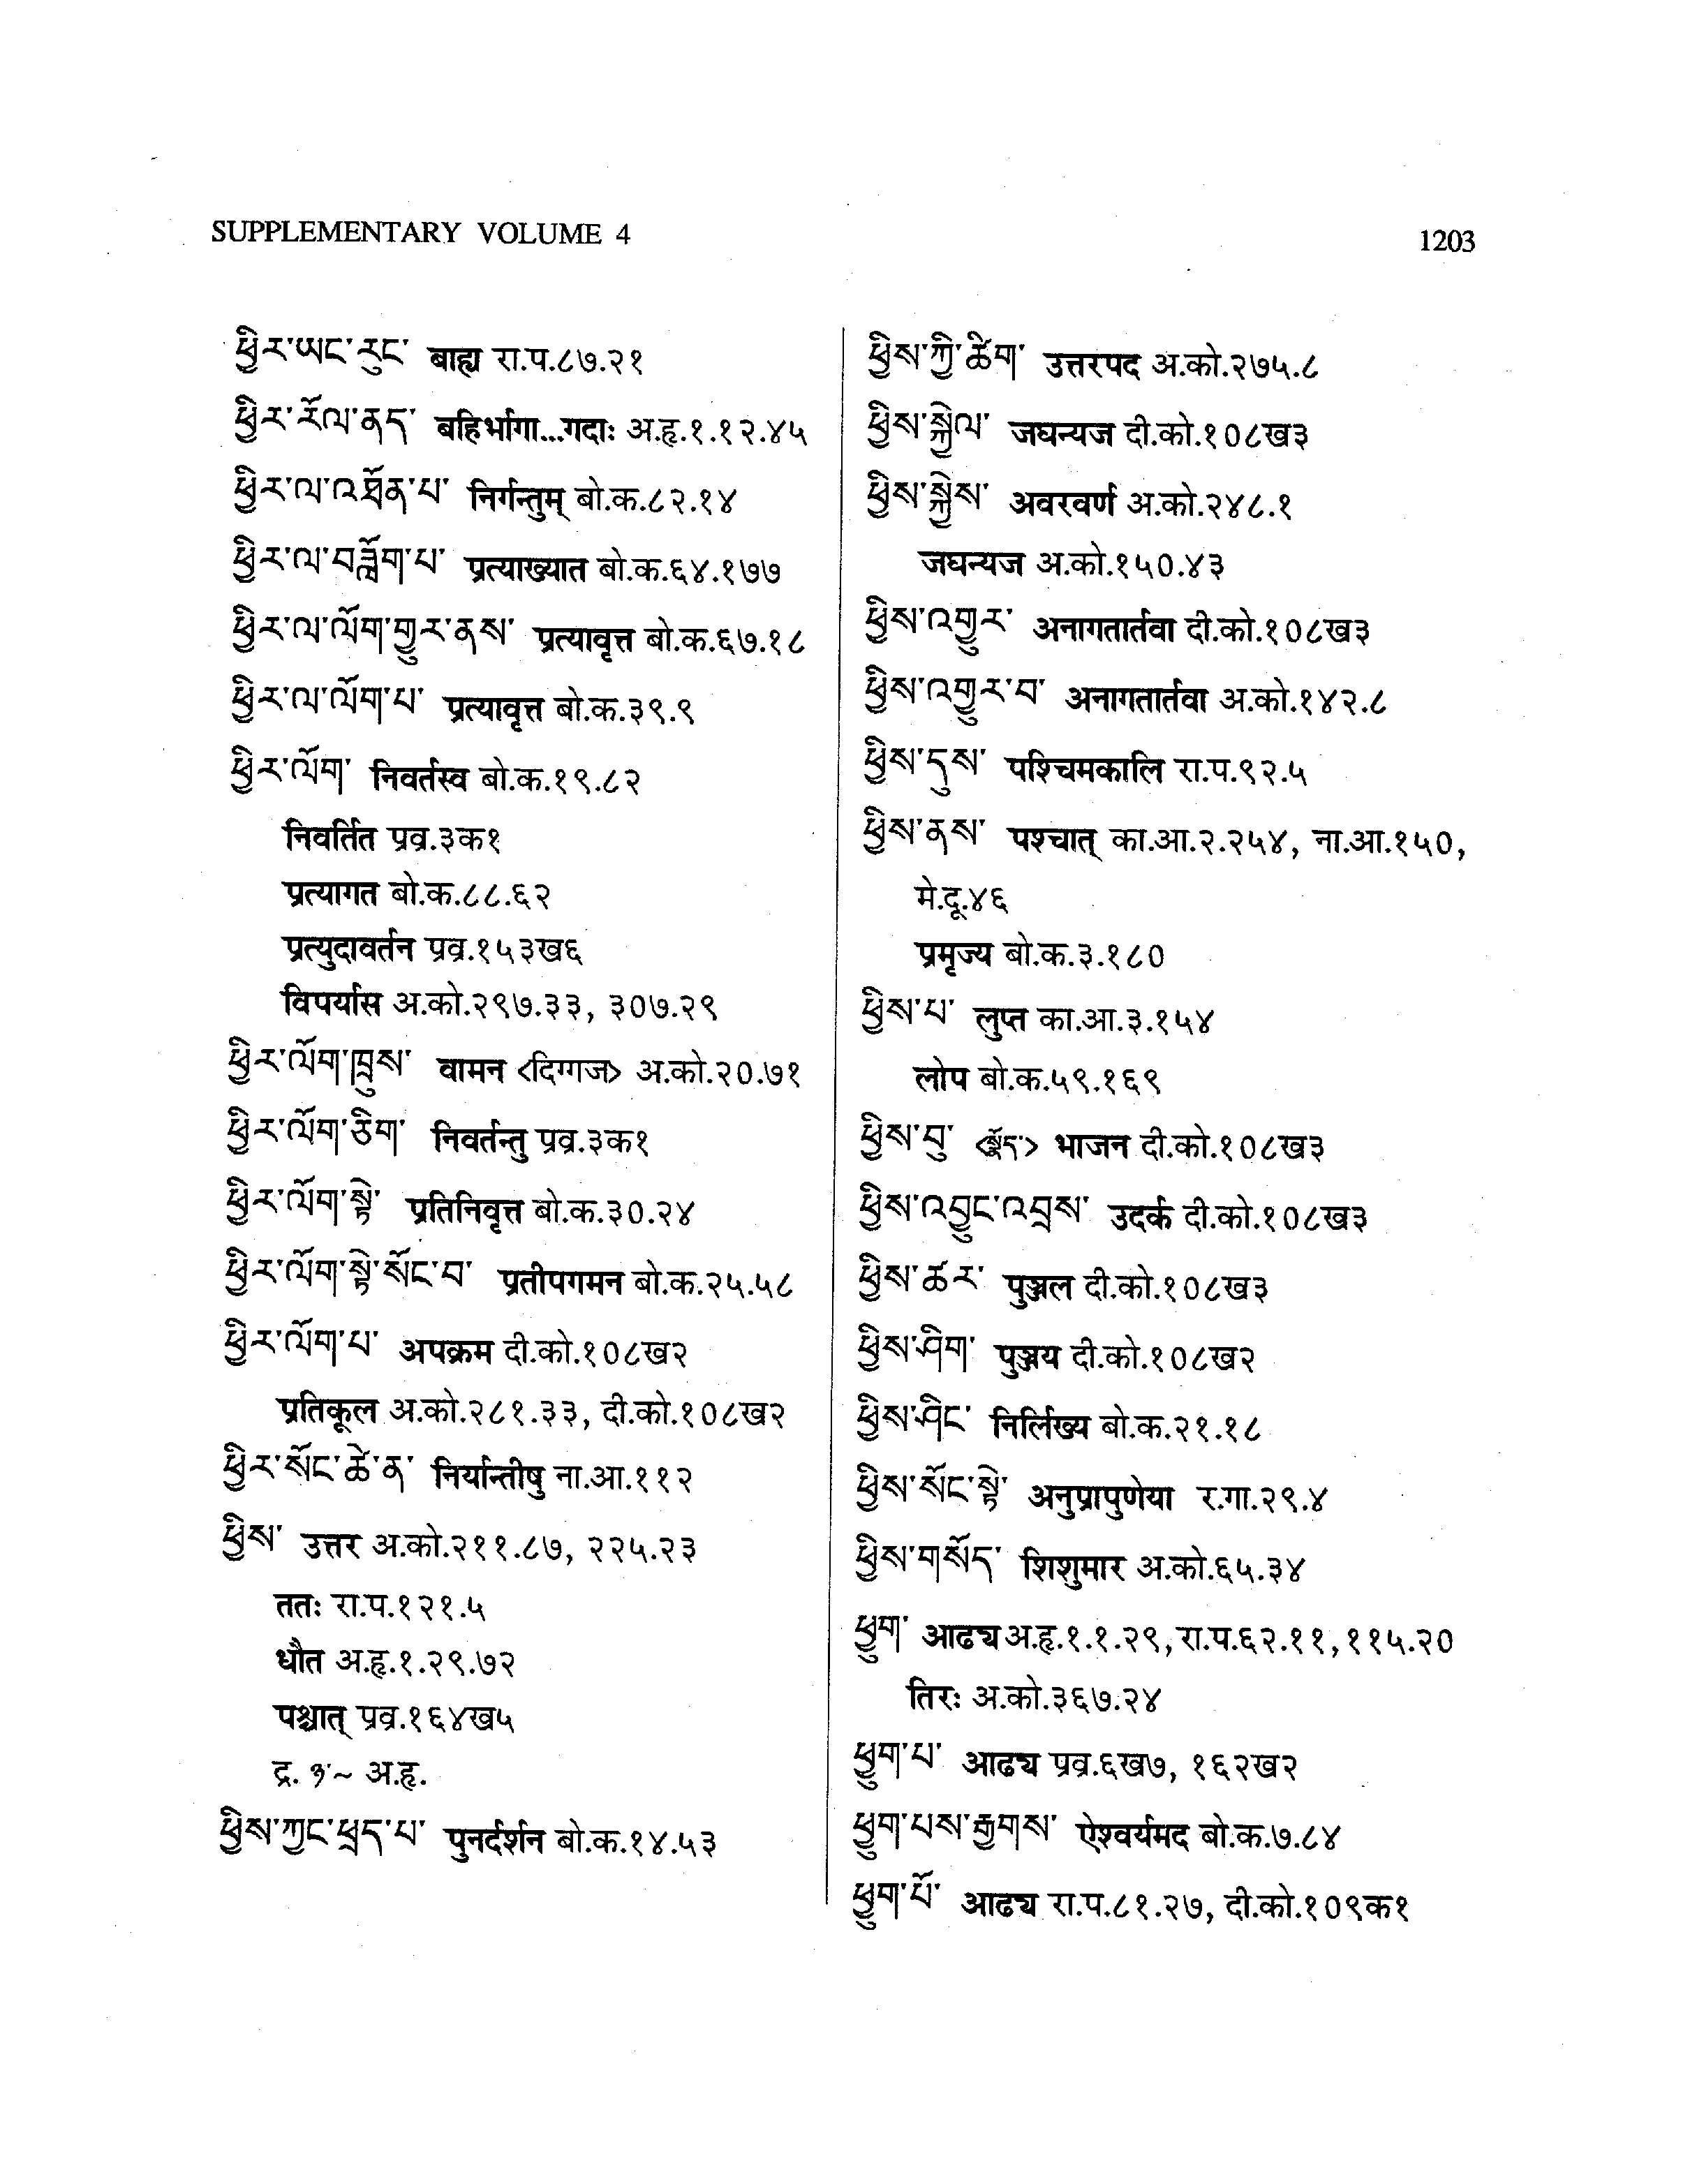 SUPPLEMENTARY VOLUME 4
1203
ཕྱིར་ཡང་རུང་ बाह्य रा.प.८७.२१
ཕྱིར་རོལ་ནད་ बहिर्भागा...गदाः अ.हृ.१.१२.४५
ཕྱིར་ལ་འཐོན་པ་ निर्गन्तुम् बो.क.८२.१४
ཕྱིར་ལ་བཟློག་པ་ प्रत्याख्यात बो.क.६४.१७७
ཕྱིར་ལ་ལོག་གྱུར་ནས་ प्रत्यावृत्त बो.क.६७.१८
ཕྱིར་ལ་ལོག་པ་ प्रत्यावृत्त बो.क.३९.९
ཕྱིར་ལོག་ निवर्तस्व बो.क.१९.८२
निवर्तित प्रव्र.३क१
प्रत्यागत बो.क.८८.६२
प्रत्युदावर्तन प्रव्र.१५३ख६
विपर्यास अ.को.२९७.३३, ३०७.२९
ཕྱིར་ལོག་ཁྲུས་ वामन <दिग्गज> अ.को.२०.७१
ཕྱིར་ལོག་ཅིག་ निवर्तन्तु प्रव्र.३क१
ཕྱིར་ལོག་སྟེ་ प्रतिनिवृत्त बो.क.३०.२४
ཕྱིར་ལོག་སྟེ་སོང་བ་ प्रतीपगमन बो.क.२५.५८
ཕྱིར་ལོག་པ་ अपक्रम दी.को.१०८ख२
प्रतिकूल अ.को.२८१.३३, दी.को.१०८ख२
ཕྱིར་སོང་ཚེ་ན་ निर्यान्तीषु ना.आ.११२
ཕྱིས་ उत्तर अ.को.२११.८७, २२५.२३
ततः रा.प.१२१.५
धौत अ.हृ.१.२९.७२
पश्चात् प्रव्र.१६४ख५
द्र. ~ अ.हृ.
ཕྱིས་ཀྱང་ཕྲད་པ་ पुनर्दर्शन बो.क.१४.५३
ཕྱིས་ཀྱི་ཚིག་ उत्तरपद अ.को.२७५.८
ཕྱིས་སྐྱེལ་ जघन्यज दी.को.१०८ख३
ཕྱིས་སྐྱེས་ अवरवर्ण अ.को.२४८.१
जघन्यज अ.को.१५०.४३
ཕྱིས་འགྱུར་ अनागतार्तवा दी.को.१०८ख३
ཕྱིས་འགྱུར་བ་ अनागतार्तवा अ.को.१४२.८
ཕྱིས་དུས་ पश्चिमकालि रा.प.९२.५
ཕྱིས་ནས་ पश्चात् का.आ.२.२५४, ना.आ.१५०,
मे.दू.४६
प्रमृज्य बो.क.३.१८०
ཕྱིས་པ་ लुप्त का.आ.३.१५४
लोप बो.क.५९.१६९
ཕྱིས་བུ་ <སྣོད་> भाजन दी.को.१०८ख३
ཕྱིས་འབྱུང་འབྲས་ उदर्क दी.को.१०८ख३
ཕྱིས་ཚར་ पुञ्जल दी.को.१०८ख३
ཕྱིས་ཤིག་ पुञ्जय दी.को.१०८ख२
ཕྱིས་ཤིང་ निर्लिख्य बो.क.२१.१८
ཕྱིས་སོང་སྟེ་ अनुप्रापुणेया र.गा.२९.४
ཕྱིས་གསོད་ शिशुमार अ.को.६५.३४
ཕྱུག་ आढ्य अ.हृ.१.१.२९, रा.प.६२.११, ११५.२०
तिरः अ.को.३६७.२४
ཕྱུག་པ་ आढ्य प्रव्र.६ख७, १६२ख२
ཕྱུག་པས་རྒྱགས་ ऐश्वर्यमद बो.क.७.८४
ཕྱུག་པོ་ आढ्य रा.प.८१.२७, दी.को.१०९क१